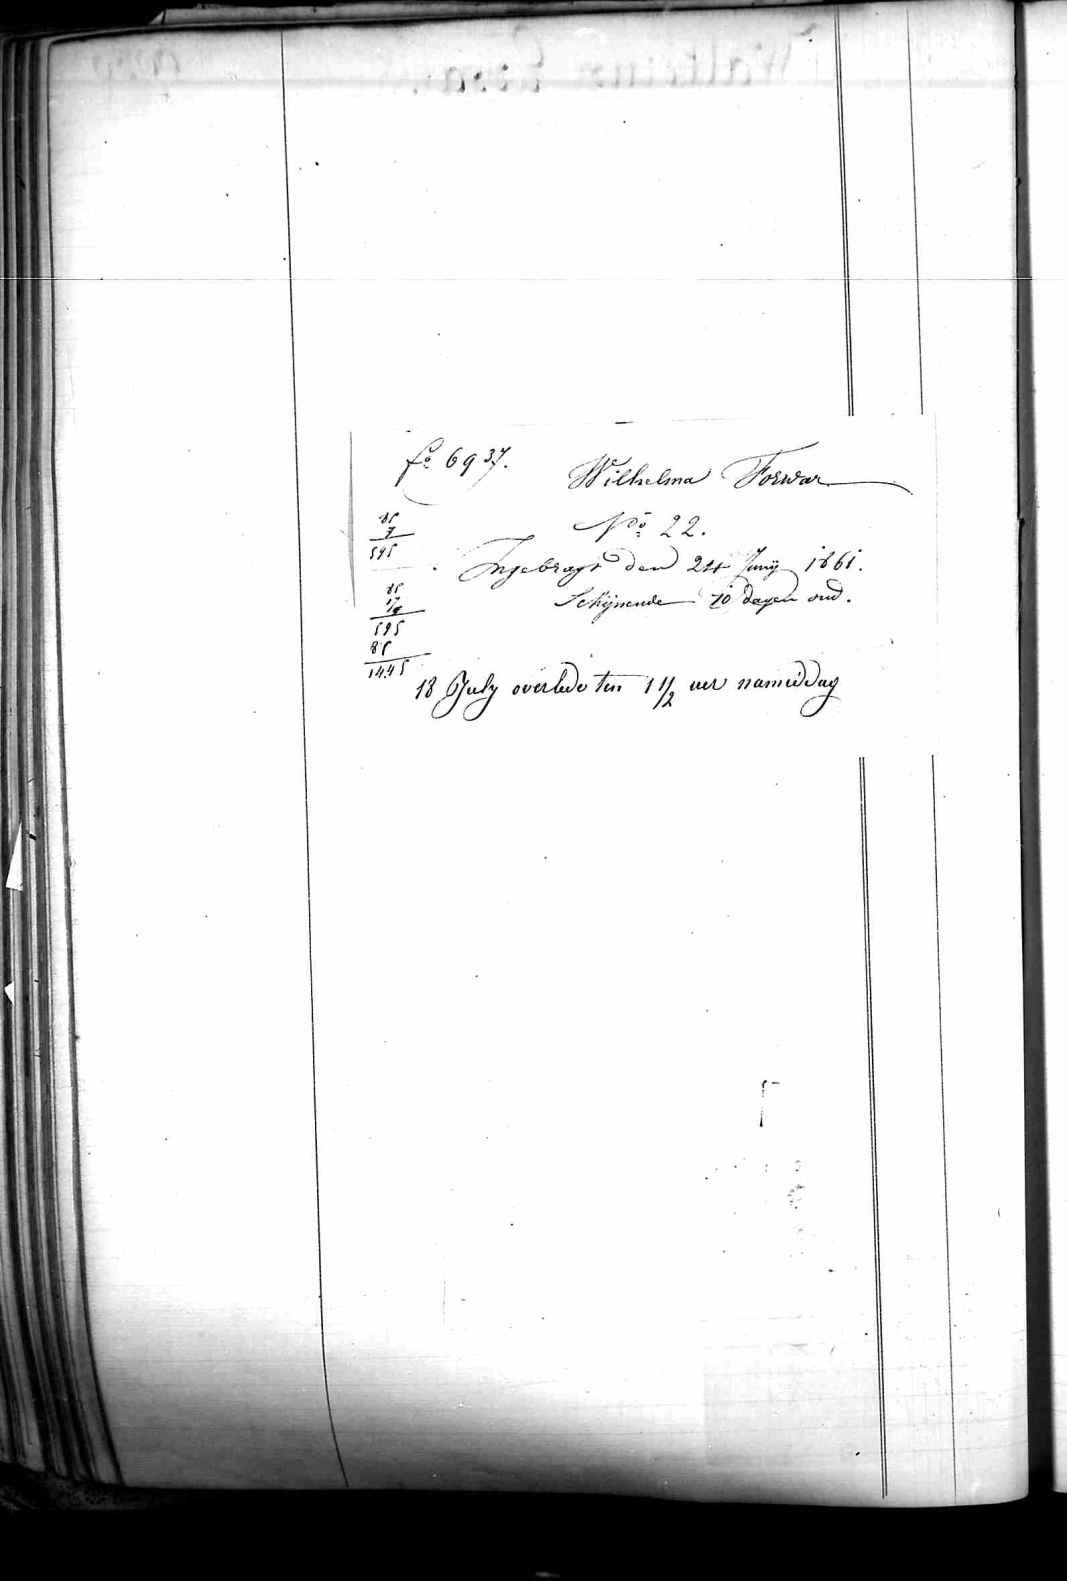 fo. 6937.
Wilhelma Forwar
No. 22.
85
7
595
Ingebragt den 24 Junij 1861.
85
17
595
85
1445
Schijnende 10 dagen oud.
18 July overlede ten 1 1/2 uer namiddag